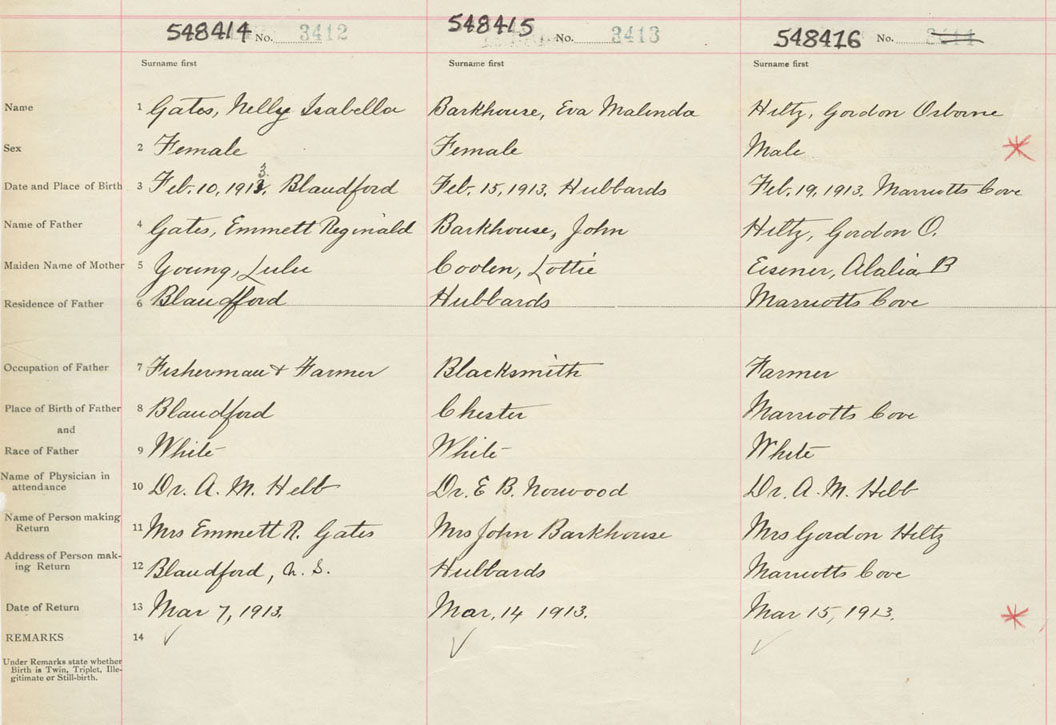 548414 No. 3412 548415 No. 3413 548416 No. 3414
Surname first Surname first Surname first
Name 1 Gates, Nelly Isabella Barkhouse, Eva Malinda Hiltz, Gordon Osborne
Sex 2 Female Female Male
Date and Place of Birth 3 Feb. 10, 1913, Blandford Feb. 15, 1913. Hubbards Feb. 19, 1913. Marriotts Cove
Name of Father 4 Gates, Emmett Reginald Barkhouse, John Hiltz, Gordon O.
Maiden Name of Mother 5 Young, Lulu Coolen, Lottie Eisener, Alalia B
Residence of Father 6 Blandford Hubbards Marriotts Cove
Occupation of Father 7 Fisherman & Farmer Blacksmith Farmer
Place of Birth of Father 8 Blandford Chester Marriotts Cove
and
Race of Father 9 White White White
Name of Physician in attendance 10 Dr. A. M. Hebb Dr. E B. Norwood Dr. A. M. Hebb
Name of Person making Return 11 Mrs Emmett R. Gates Mrs John Barkhouse Mrs Gordon Hiltz
Address of Person mak-ing Return 12 Blandford, N. S. Hubbards Marriotts Cove
Date of Return 13 Mar 7, 1913. Mar, 14 1913. Mar 15, 1913.
REMARKS 14
Under Remarks state whether
Birth is Twin, Triplet, Ille-
gitimate or Still-birth.